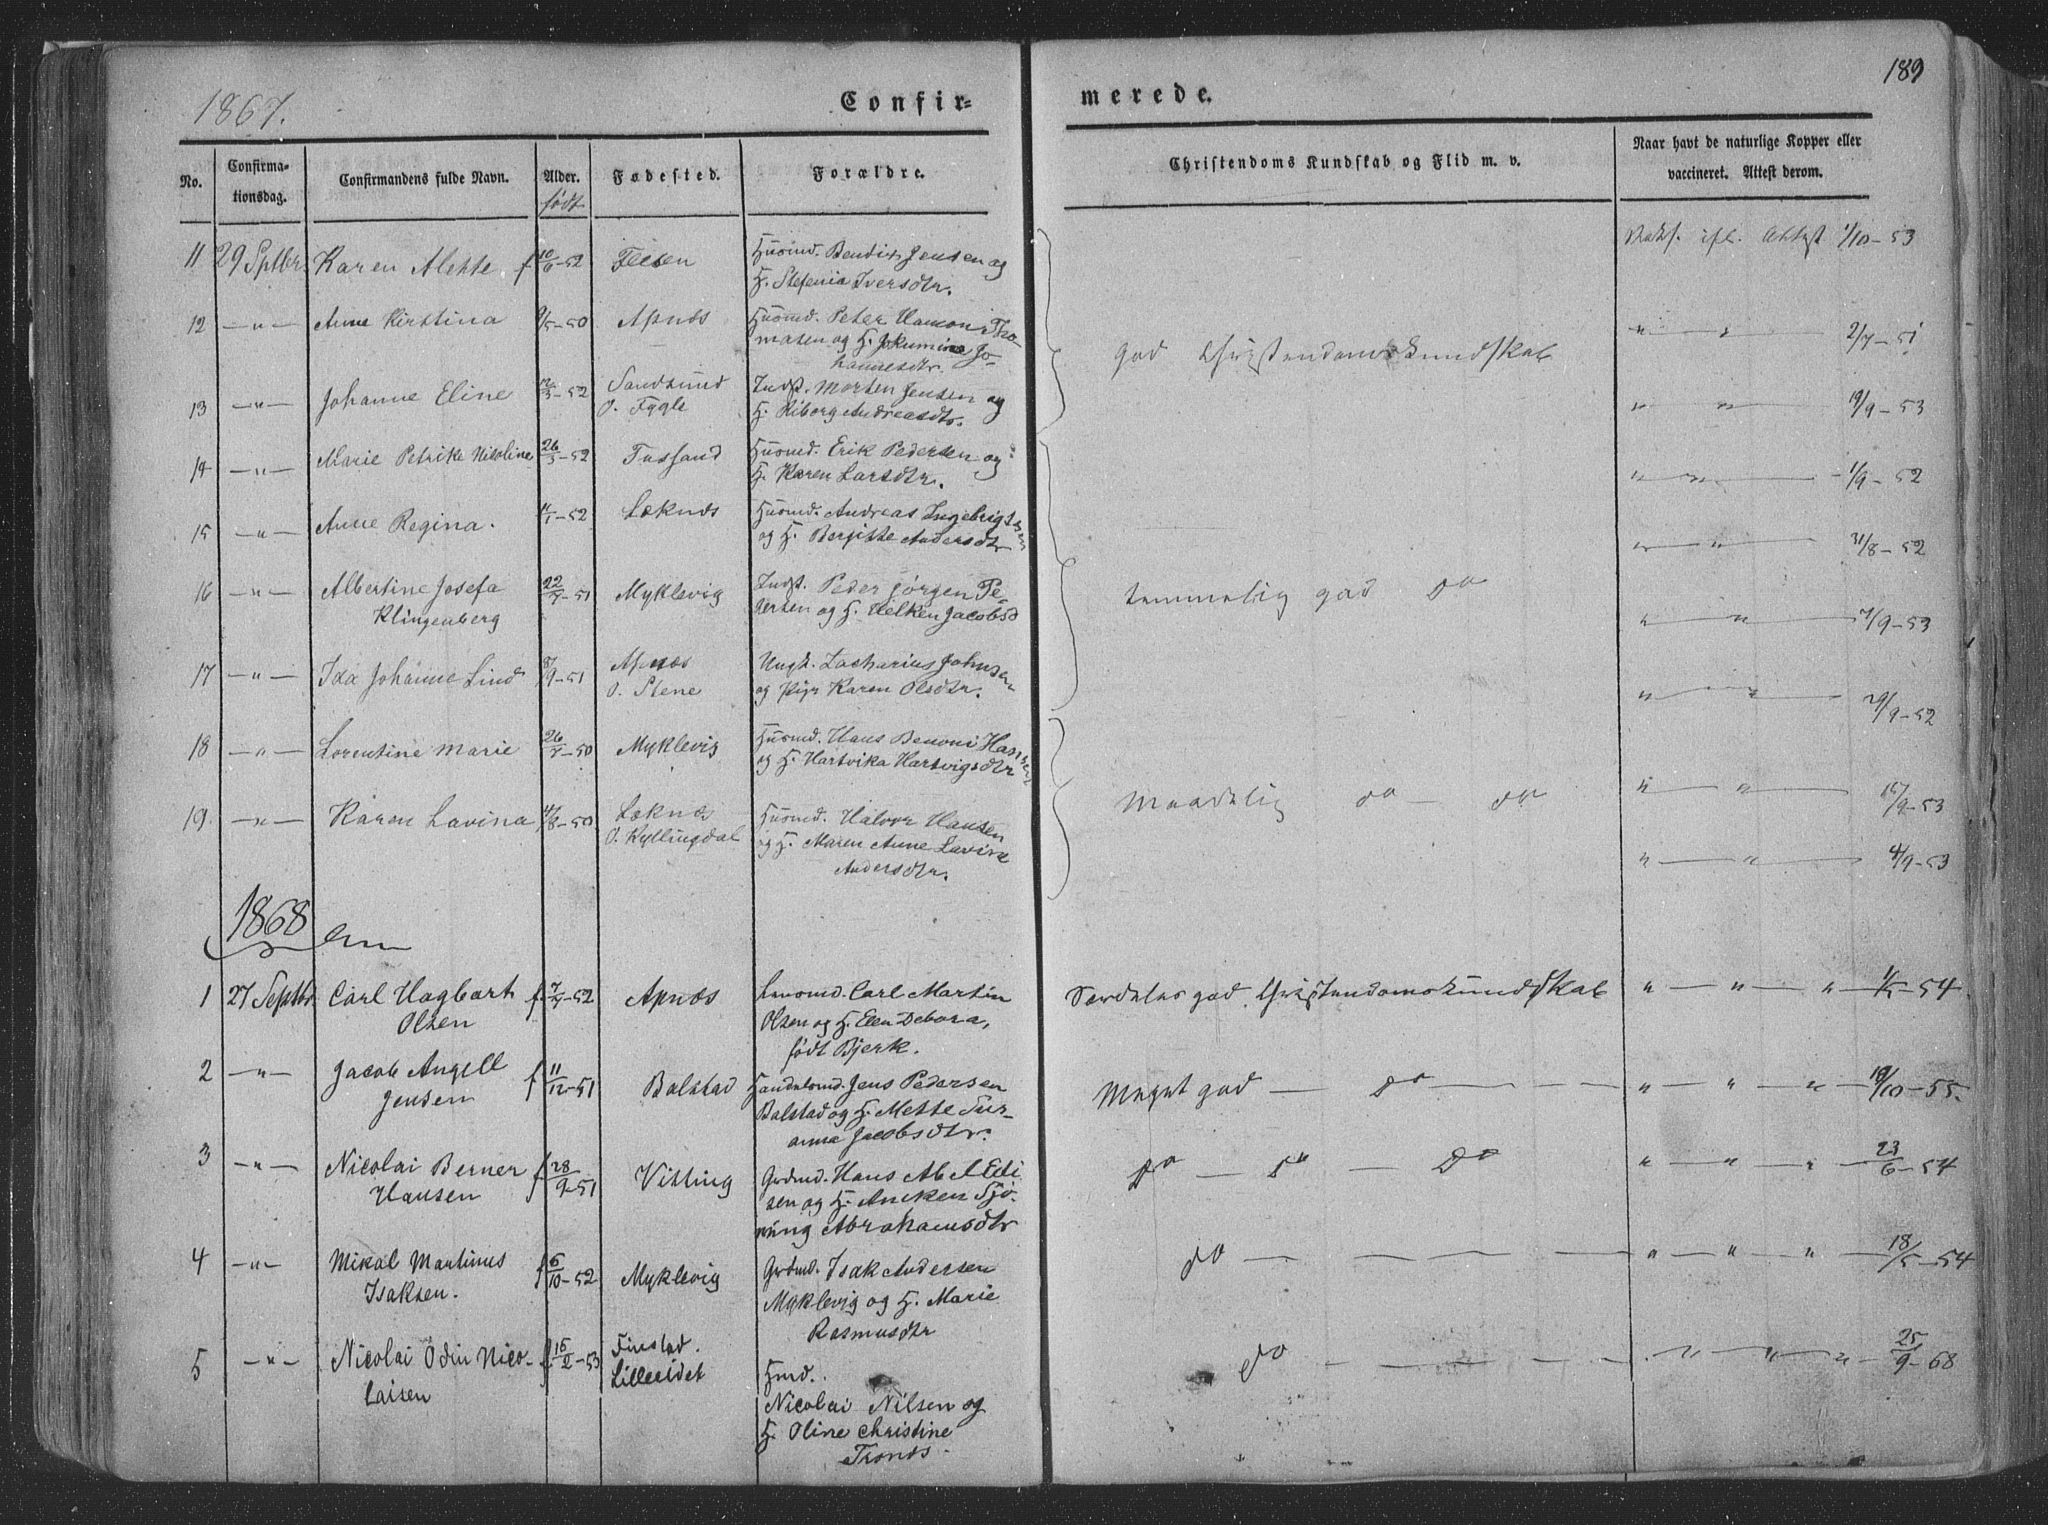 189
1867.
Confir-
merede.
No.
Confirma-
tionsdag.
Confirmandens fulde Navn.
Alder.
født
Fødested.
Forældre.
Christendoms Kundskab og Flid m. v.
Naar havt de naturlige Kopper eller
vaccineret. Attest derom.
11 29 Sptbr. Karen Alette f 10/6-52
Husmd. Bendix Jensen og
H. Stefenia Iversdtr.
Vaks. ifl. Attest 1/10-53
12 -"- Anne Kirstina 9/5-50 Apnæs
Husmd. Peter Hamon Tho-
masen og H. Jokumine Jo-
hannesdtr.
" " 2/7-51
god Christendomskundskab
13 -"- Johanne Eline -52 Sandsund
O. Fygle
Indst. Morten Jensen og
H. Riborg Andreasdtr.
" " 19/9-53
14 -"- Marie Petrike Nicoline 26/3-52 Tussand
Husmd. Erik Pedersen og
H. Karen Larsdtr.
" " 1/9-52
15 -"- Anne Regina. -52 Læknæs
Husmd. Andreas Ingebrigtsen
og H. Bergitte Andersdtr
" " 31/8-52
16 -"- Albertine Josefa
Klingenberg
22/7-51 Myklevig
Indst. Peder Jørgen Pe-
dersen og H. Helken Jacobsd
temmelig god do
" " 7/9-53
17 -"- Ida Johanne Lind 8/9-51 Apnæs
O. Stene
Ungk. Zacharius Johnsen
og Pige Karen Olsdtr.
" " 29/9-52
18 -"- Lorentine Marie 26/7-50 Myklevig
Husmd. Hans Benoni Hansen
og H. Hartvika Hartvigsdtr
" " 15/9-53
Maadelig do - do
19. -"- Karen Lavina 4/8-50 Læknæs
O. Kyllingdal
Husmd. Halvor Hansen
og H. Maren Anne Lavina
Andersdtr.
" " 4/9-53
1868
1 27 Septbr. Carl Hagbart
Olsen
f. 7/7-52 Apnæs
Lensmd. Carl Martin
Olsen og H. Elen Debora,
født Bjerk.
Særdeles god Christendomskundskab
" - " - " 1/5-54.
2 -"- Jacob Angell
Jensen
f 11/12-51 Balstad
Handelsmd. Jens Pedersen
Balstad og H. Mette Sus-
anna Jacobsdtr.
Meget god - Do -
" " " 18/10-55.
3 -"- Nicolai Berner
Hansen
f. 28/9-51 Vitting
Grdmd. Hans Abel Edi
sen og H. Aneken Sjø-
ning Abrahamsdtr
Do - Do - Do
" - " - " - 23/6-54
4 -"- Mikal Martinus
Isaksen.
f 6/10-52 Myklevig
Grdmd. Isak Andersen
Myklevig og H. Marie
Rasmusdtr
do -
" - " - " - 18/5-54
5 -"- Nicolai Odin Nico-
laisen
f 15/2-53 Finstad.
Lilleeidet
Hmd.
Nicolai Nilsen og
H. Oline Christine
Tronds.
do -
" - " - " - 25/9-68